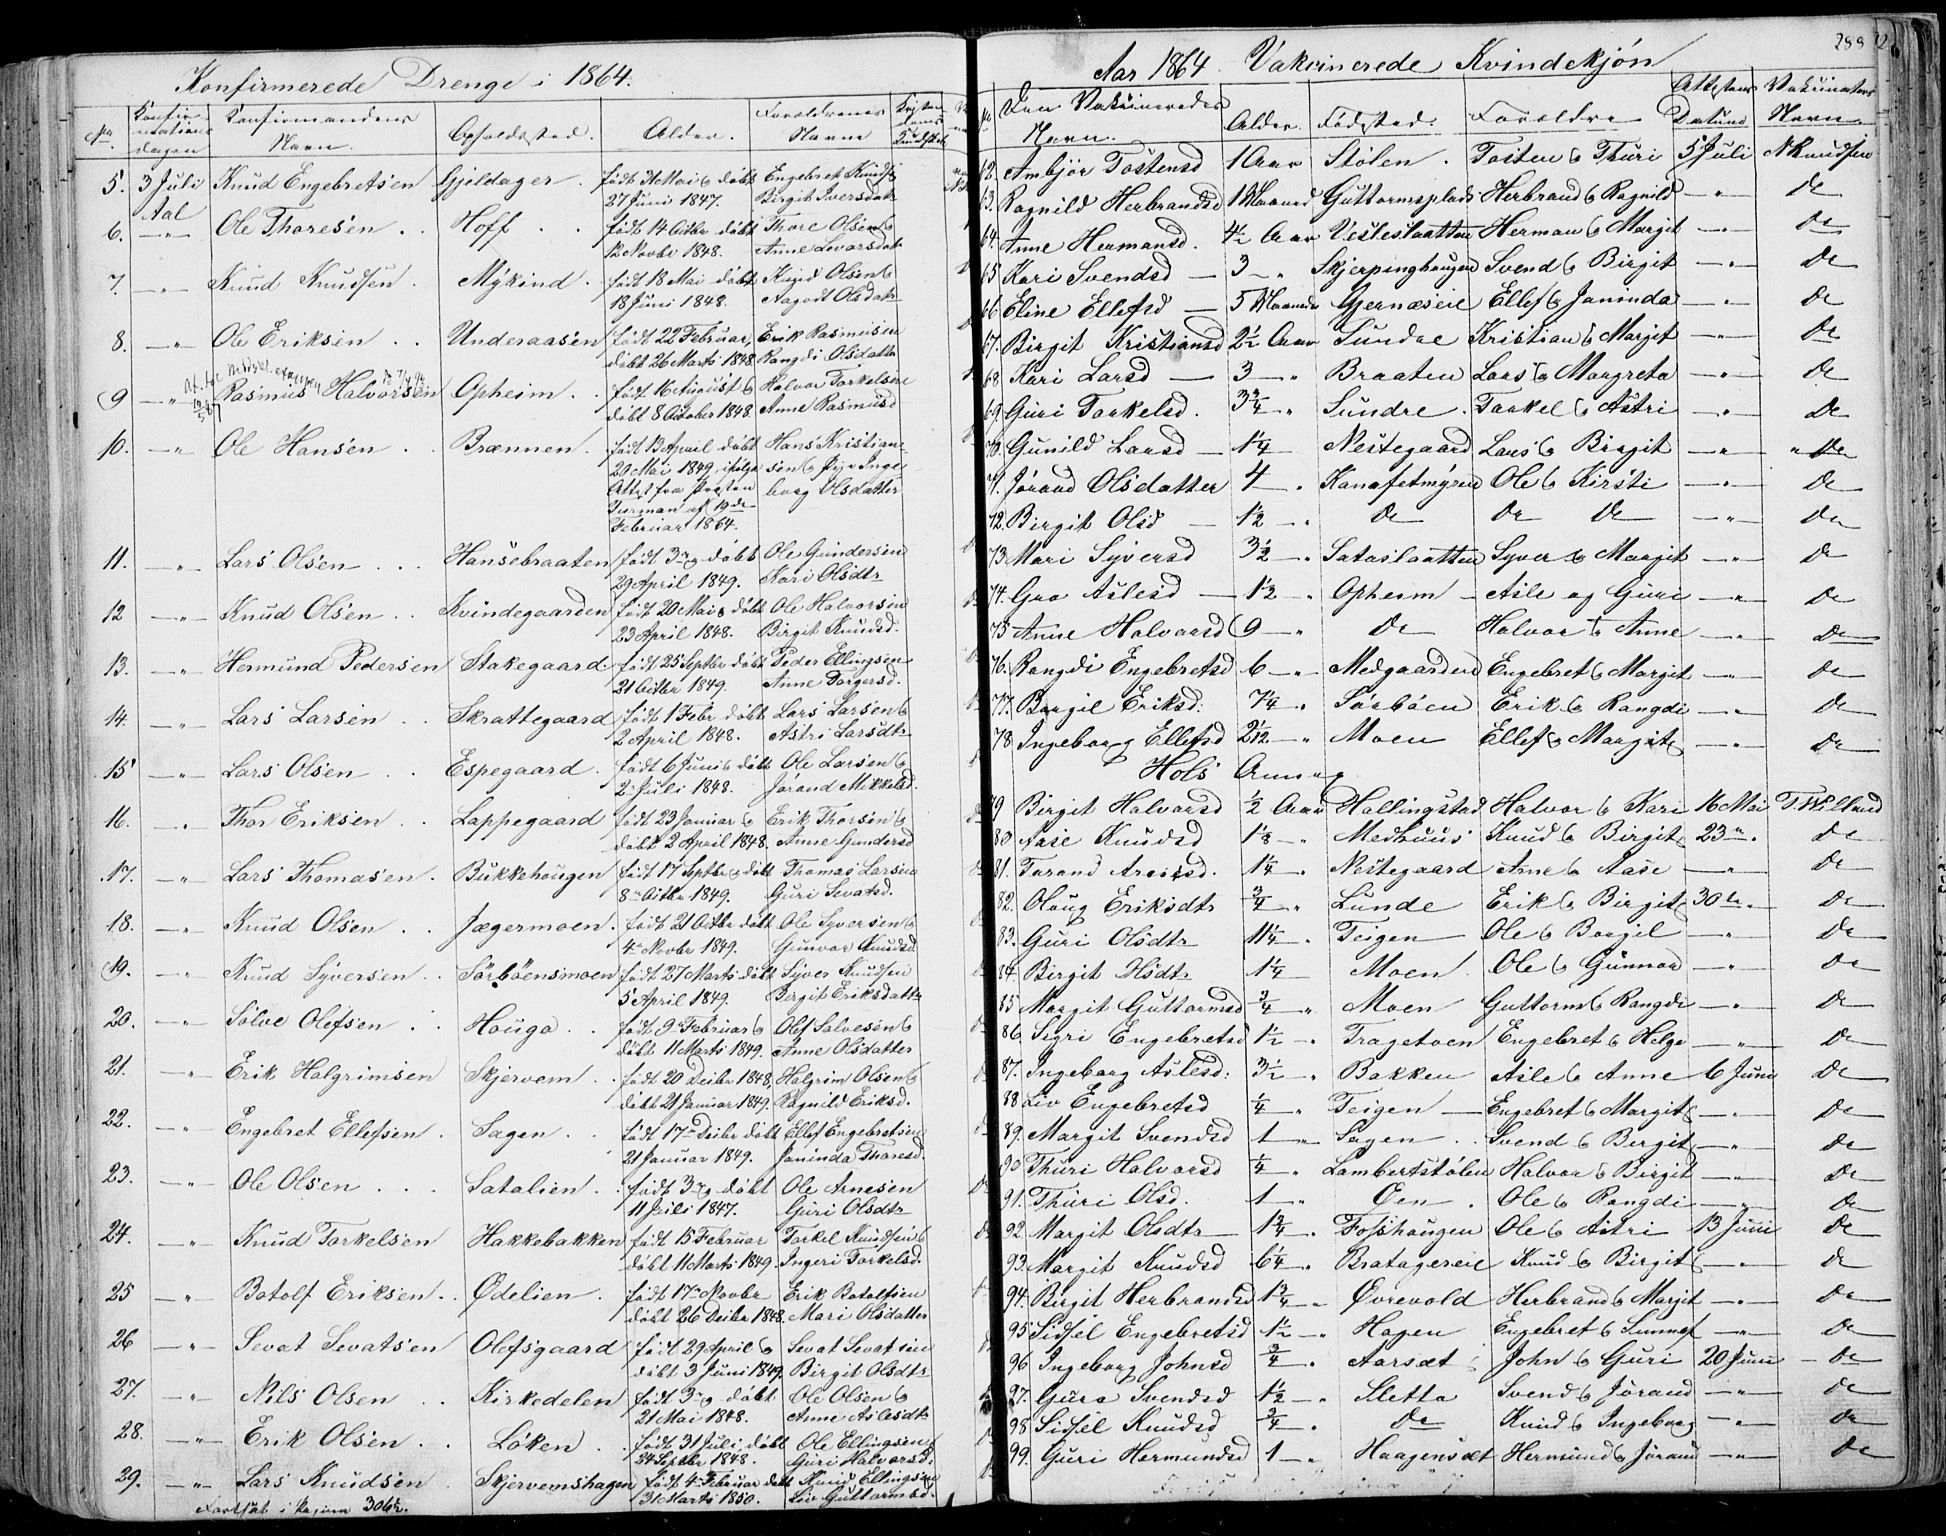 Konfirmerede Drenge i 1864.
No. Konfirmationsdagen Konfirmandens Navn. Opholdssted. Alder. Forældrenes Navne
5. 3 Juli Knud Engebretsen Gjeldager. født 3 Mai & døbt Engebret Knuds
Aal 27 Juni 1847. Birgit Iversdatr
6. —"— Ole Thoresen . . Hoff . . født 14 Octbr døbt Thore Olsen &
12 Novbr 1848. Anne Levorsdatr
7. —"— Knud Knudsen . Mykind . født 13 Mai døbt Knud Olsen &
18 Juni 1848. Aagodt Olsdatr
8. —"— Ole Eriksen . . Underaasen født 22 Februar, Erik Rasmusen
døbt 26 Marts 1848. Rangdi Olsdatter
9 —"— Rasmus Halvorsen Opheim . . født 16 August & Halvor Torkelsen
døbt 8 October 1848. Anne Rasmusd
10. —"— Ole Hansen . . Brænnen . født 13 April døbt Hans Kristian-
20 Mai 1849, ifølge sen & Pige Inge
Attest fra Presten borg Olsdatter
af 19de
Februar 1864.
11. —"— Lars Olsen — . . . Hansebraaten født 3 & døbt Ole Gundersen
29 April 1849. Kari Olsdtr
12 —"— Knud Olsen . . Kvindegaarden født 20 Mai & døbt Ole Halvorsen
23 April 1848. Birgit Knudsd.
13. —"— Hermund Pedersen Stakegaard. født 25 Septbr døbt Peder Ellingsen
21 Octbr 1849. Anne Torgersd.
14. —"— Lars Larsen . . Skrattegaard født 1 Febr døbt Lars Larsen &
2 April 1848. Astri Larsdtr
15 —"— Lars Olsen . . Espegaard . født 6 Juni & døbt Ole Larsen &
2 Juli 1848. Jørand Mikkelsd.
16. " Thor Eriksen . Lappegaard født 23 Januar & Erik Thorsen &
døbt 2 April 1848. Anne Gundersd
17. —"— Lars Thomasen . Bukkehougen født 17 Septbr & døbt Thomas Larsen
8 Octbr 1849. Guri Sevatsd.
18. —"— Knud Olsen . . Jægermoen . født 21 Octbr døbt Ole Syversen &
4 Novbr 1849. Gunvor Knudsd
19. —"— Knud Syversen . . Sørbøensmoen født 27 Marts døbt Syver Knudsen
5 April 1849. Birgit Eriksdatr
20. —"— Sølve Olefsen . . Houga . . født 9 Februar & Olef Salvesen &
døbt 11 Marts 1849. Anne Olsdatter
21. —"— Erik Halgrimsen Skjervem . . født 20 Decbr 1848, Halgrim Olsen &
døbt 21 Januar 1849. Ragnild Eriksd.
22. —"— Engebret Ellefsen . Sagen . . født 17 Decbr døbt Ellef Engebretsen
21 Januar 1849. Janinda Thoresd.
23. —"— Ole Olsen . . . Satalien . . født 3 & døbt Ole Arnesen
11 Juli 1847. Guri Olsdtr
24. —"— Knud Torkelsen Hakkebakken født 15 Februar Torkel Knudsen &
døbt 11 Marts 1849. Ingeri Torkelsd.
25 —"— Botolf Eriksen . . Ødelien . født 17 Novbr Erik Botolfsen
døbt 26 Decbr 1848. Mari Olsdatter
26 —"— Sevat Sevatsen Olefsgaard født 29 April & Sevat Sevatsen
døbt 3 Juni 1849. Birgit Olsdtr
27. —"— Nils Olsen . . Kirkedelen født 3 & døbt Ole Olsen &
21 Mai 1848. Anne Aslesdtr
28. —"— Erik Olsen . . Løken . . født 31 Juli, døbt Ole Ellingsen
24 Septbr 1848. Guri Halvorsd.
29. —"— Lars Knudsen Skjervemshagen født 4 Februar døbt Knud Ellingsen
31 Marts 1850. Liv Guttormsd.
Fortsat i Pagina 306
288
Aar 1864 Vakcinerede Kvindekjøn
No Den Vakcineredes Navn. Alder. Fødested. Forældre Attestens Datum Vakcinators Navn
62. Ambjør Tostensd 1 Aar Stølen . Tosten & Thuri 5 Juli NKnudsen
63. Ragnild Herbrandsd Guttormsplads Herbrand & Ragnild —"— Do
64. Anne Hermansd. 4½ Aar Vesleslaatten Herman & Margit —"— Do
65 Kari Svendsd — 3 —" Skjerpinghaugen Svend & Birgit —"— Do
66 Eline Ellefsd — 5 Maaned Gjernæseie Ellef & Janinda —"— Do
67. Birgit Kristiansd 2½ Aar Sundre Kristian & Margit —"— Do
68 Kari Larsd — 3 —" Braaten Lars & Margreta —"— Do
69. Guri Torkelsd. 3¾ —" Sundre . Torkel & Astri —"— Do
70. Gunild Larsd — 1¼ Nestegaard Lars & Birgit —"— Do
71. Jørand Olsdatter 4 —" Kanafetmyren Ole & Kirsti —"— Do
72. Birgit Olsd — 1½ —" Do Do Do —"— Do
73. Mari Syversd 3½ —" Sataslaatten Syver & Margit —"— Do
74. Gro Aslesd — 1½ —" Opheim — Asle og Guri —"— Do
75 Anne Halvorsd 9 —" Do Halvor & Anne —"— Do
76. Rangdi Engebretsd 6 —" Medgaarden Engebret & Margit —"— Do
77. Borgil Eriksd: 7¼ " Sørbøen Erik & Rangdi —"— Do
78 Ingeborg Ellefsd 2½ —" Moen Ellef & Margit —"— Do
Hols Annex
79 Birgit Halvorsd ½ Aar Hallingstad Halvor & Kari 16 Mai
80. Aase Knudsd 1⅛ —" Medhuus Knud & Birgit 23 " Do
81. Tarand Arnesd. 1¼ —" Nestegaard Arne & Aase —"— Do
82. Oloug Eriksdtr ¾ " Lunde Erik & Birgit 30 Do
83. Guri Olsdtr 11¼ —" Teigen Ole & Borgil —"— Do
84. Birgit Olsdtr 1¼ Moen . Ole & Gunnor —"— Do
85 Margit Guttormsd ¾ " Moen Guttorm & Rangdi —"— Do
86 Sigri Engebretsd 1½ —" Trageton Engebret & Helge —"— Do
87. Ingeborg Aslesd: 3½ " Bakken Asle & Anne 6 Juni Do
88 Liv Engebretsd ¼ " Teigen — Engebret & Margit —"— Do
89. Margit Svendsd 1 —" Sagen . . Svend & Birgit —"— Do
90 Thuri Halvorsd ¼ " Lambertstølen Halvor & Birgit —"— Do
91. Thuri Olsd. 1 —" Øen . Ole & Rangdi —"— Do
92. Margit Olsdtr 1¾ —" Fosshougen Ole & Astri 13 Juni Do
93. Margit Knudsd 6¼ —" Bratagereie Knud & Birgit —"— Do
94. Birgit Herbrandsd 1¾ —" Øvrevold Herbrand & Margit —"— Do
95 Sidsel Engebretsd 1½ —" Hagen Engebret & Sunnef —"— Do
96 Ingeborg Johnsd ¾ " Aarsæt John & Guri 20 Juni — Do
97. Guro Svendsd 1½ " Sletta Svend & Jørand —"— Do
98 Sidsel Knudsd ¾ " Do Knud & Ingeborg —"— Do
99. Guri Hermundsd 1 —" Haagensæt Hermund & Jørand —"— Do